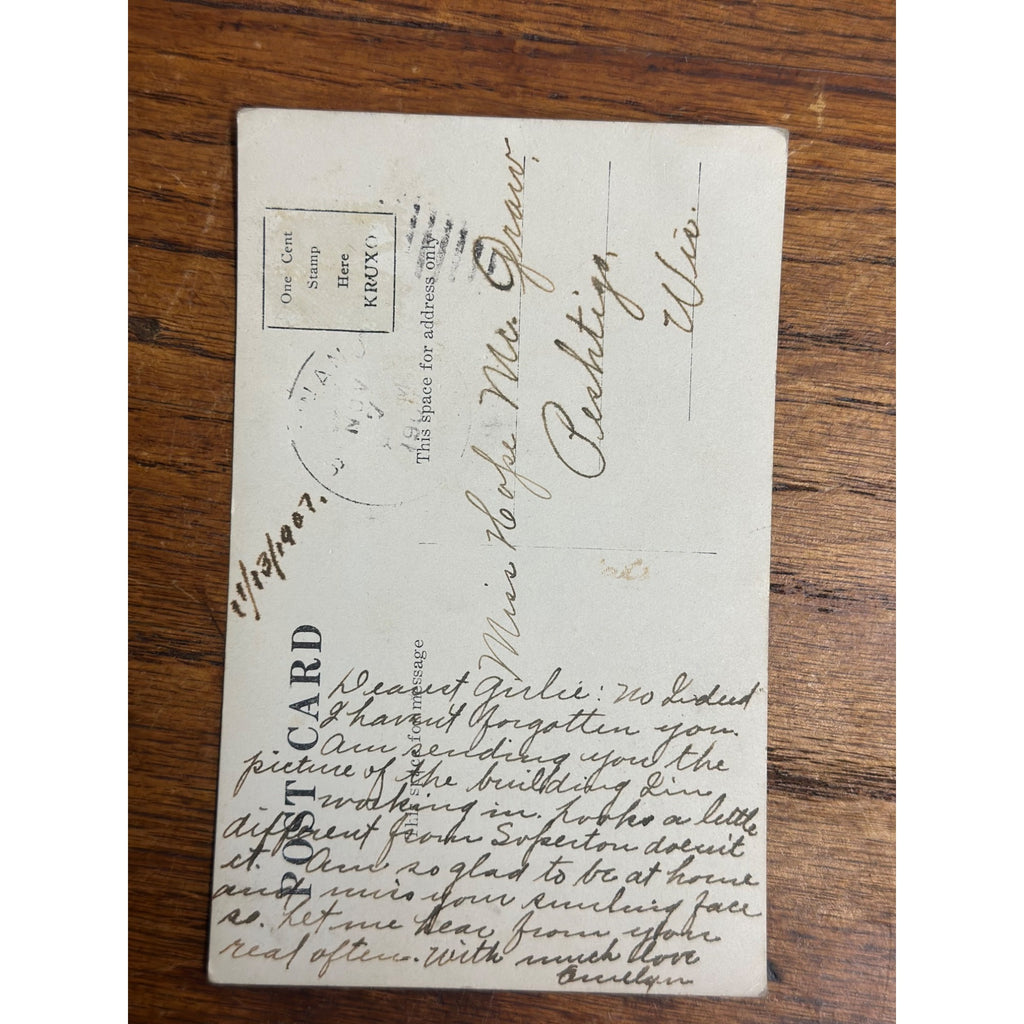 POST CARD
11/13/1907.
One Cent
Stamp
Here
KRUXO
NOV
This space for message
This space for address only
Dearest Girlie: No Indeed
I havent forgotten you.
Am sending you the
picture of the building I'm
working in. Looks a little
different from Soperton doesn't
it. Am so glad to be at home
and miss your smiling face
so. Let me hear from you
real often. With much love
Miss Hope Mc. Graw.
Peshtigo,
Wis.